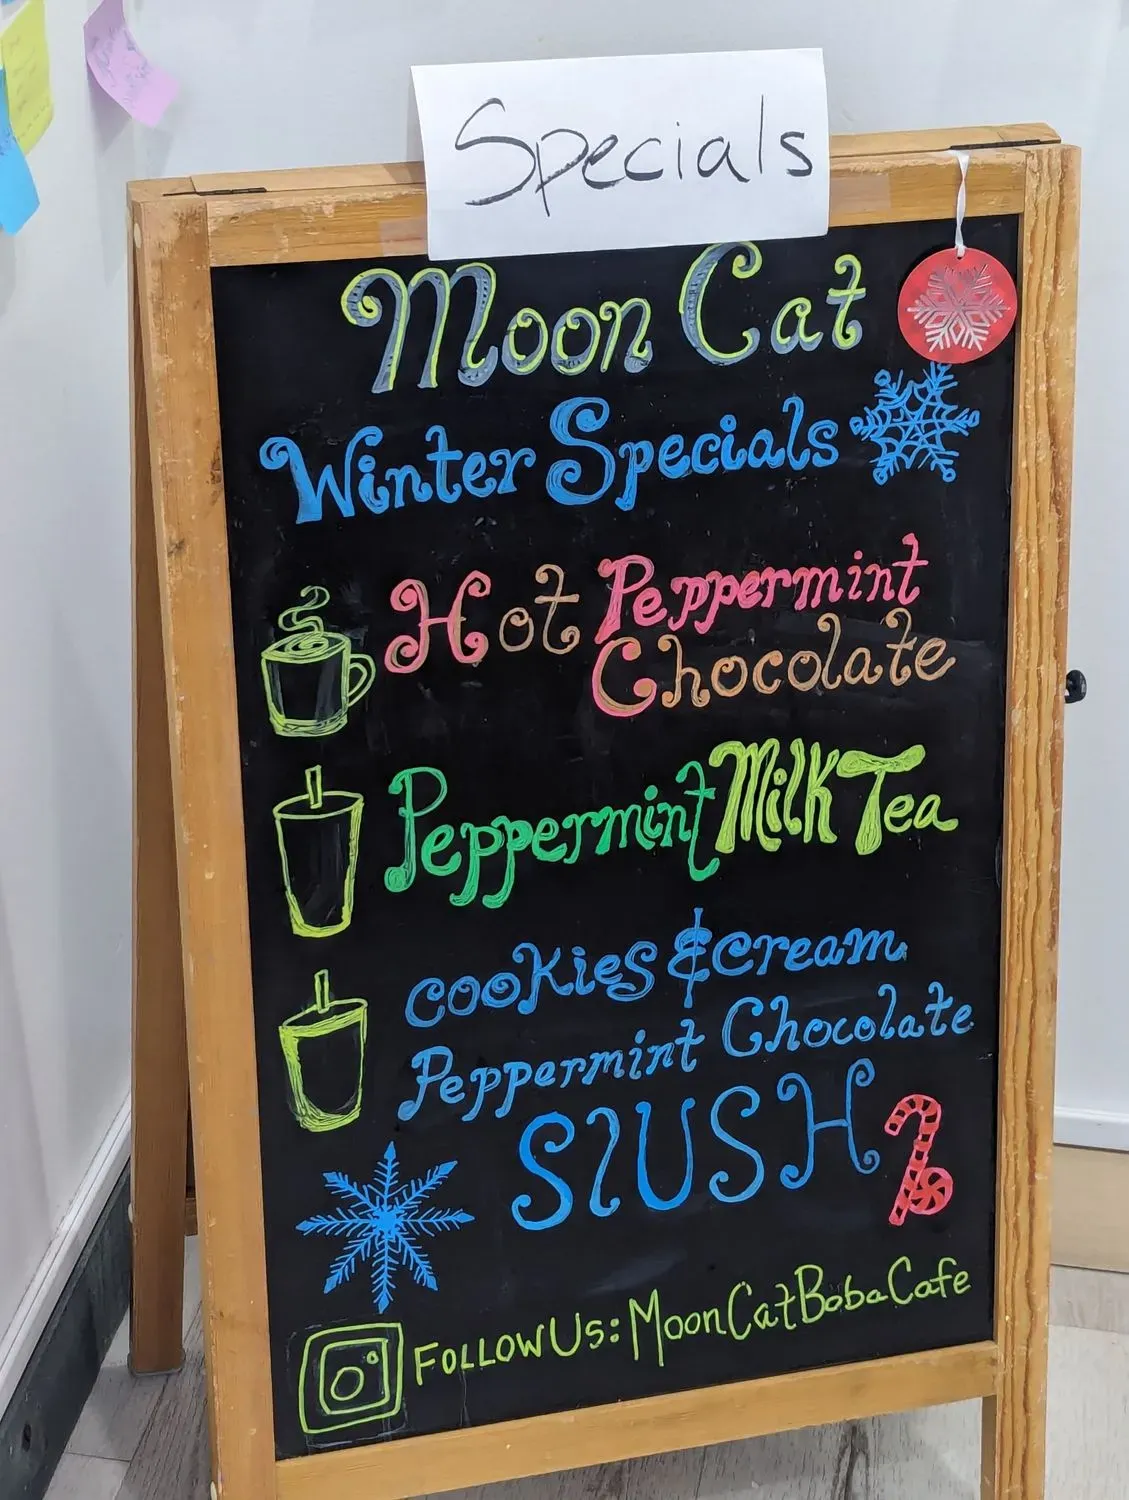 Specials
Moon Cat
Winter Specials
Hot Peppermint
Chocolate
Peppermint Milk Tea
cookies & cream
Peppermint Chocolate
SlUSH
FOLLOW Us: MoonCatBobaCafe